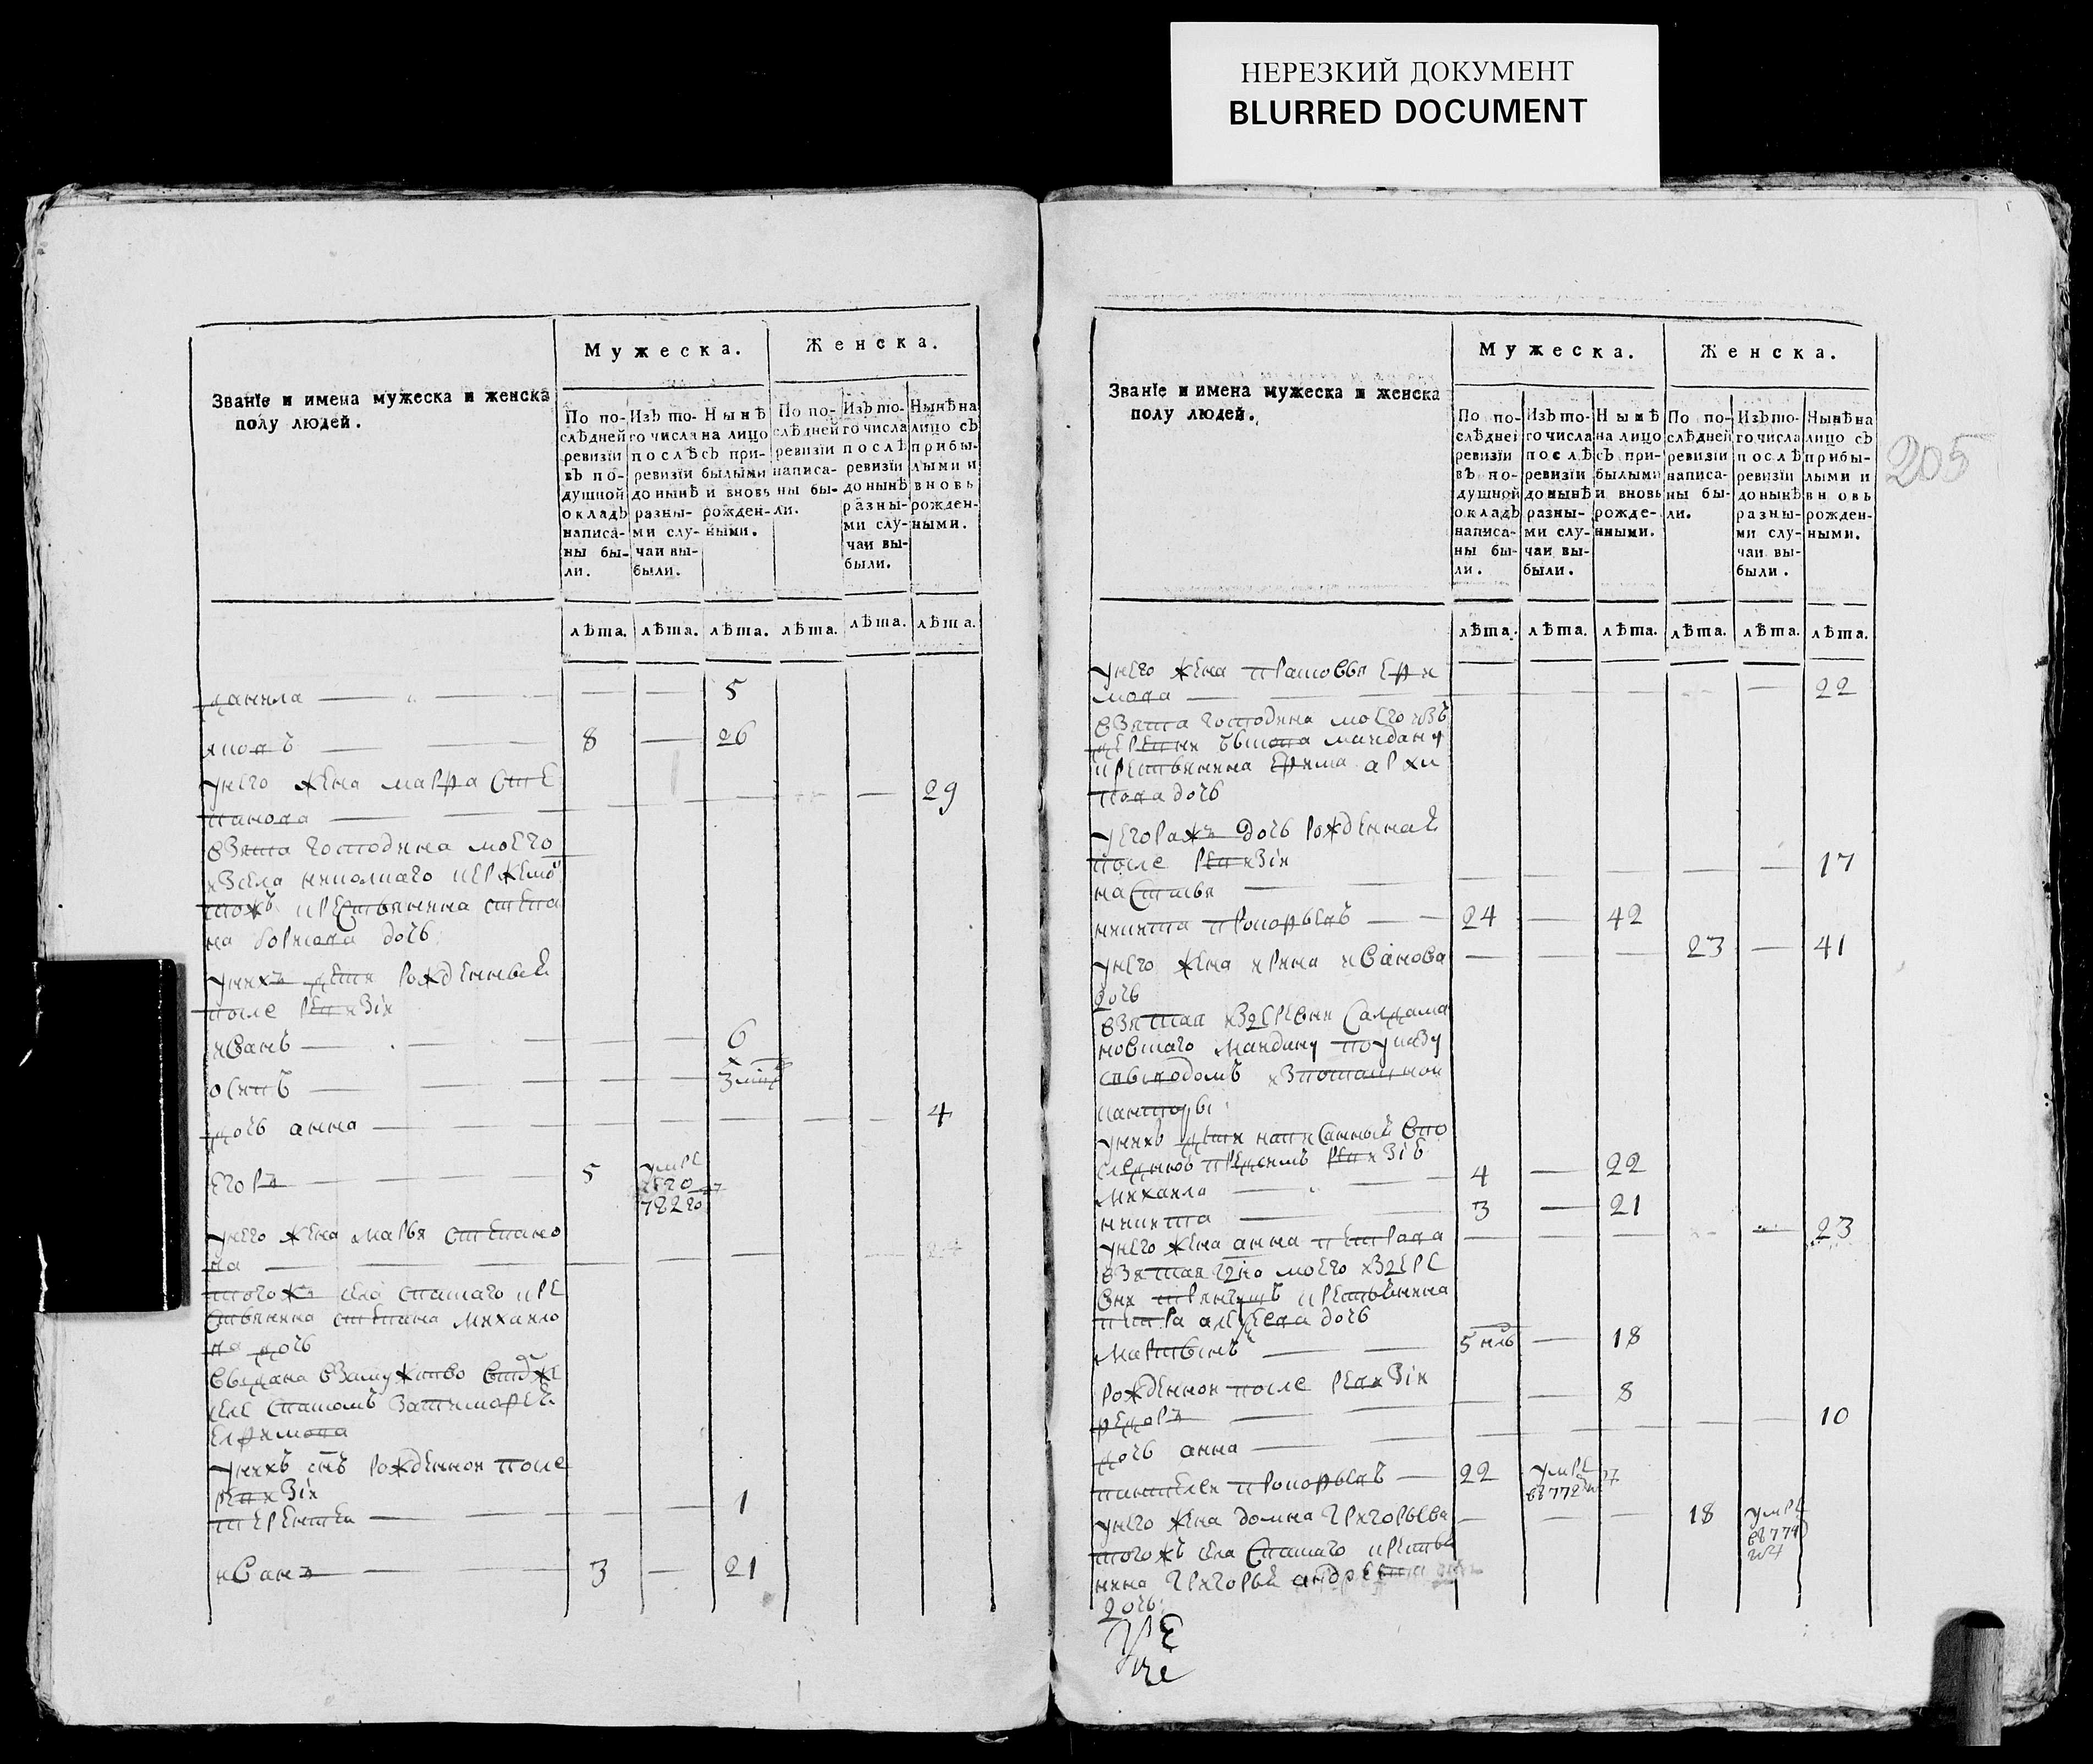 НЕРЕЗКИЙ ДОКУМЕНТ
BLURRED DOCUMENT
205
Званїе и имена мужеска и женска
полу людей.
Мужеска.
Женска.
По по-
слѣдней
ревизїи
въ по-
душной
окладъ
написа-
ны бы-
ли.
Изъ то-
го числа
послѣ
ревизїи
до нынѣ
разны-
ми слу-
чаи вы-
были.
Нынѣ
на лицо
съ при-
былыми
и вновь
рожден-
ными.
По по-
слѣдней
ревизїи
написа-
ны бы-
ли.
Изъ то-
го числа
послѣ
ревизїи
до нынѣ
разны-
ми слу-
чаи вы-
были.
Нынѣ на
лицо съ
прибы-
лыми и
вновь
рожден-
ными.
лѣта. лѣта. лѣта. лѣта. лѣта. лѣта.
данила 5
яковъ 8 26
унего жена марфа сте
панова 29
взята господина моего
изсела никольского
крестьянина степа
на борисова дочь
унихъ дети рожденныей
после ревизiи
иванъ 6
осипъ
дочь анна 4
егоръ 5 умре
унего жена марья степано
ва
тогожъ села спаскаго кре
стьянина степана михаило
ва дочь
выдана взамужство
селе спаскомъ
ефимова
унихъ снъ рожденной после
ревизiи
терентеи 1
иванъ 3 21
Званїе и имена мужеска и женска
полу людей.
Мужеска.
Женска.
По по-
слѣдней
ревизїи
въ по-
душной
окладъ
написа-
ны бы-
ли.
Изъ то-
го числа
послѣ
ревизїи
до нынѣ
разны-
ми слу-
чаи вы-
были.
Нынѣ
на лицо
съ при-
былыми
и вновь
рожде-
нными.
По по-
слѣдней
ревизїи
написа-
ны бы-
ли.
Изъ то-
го числа
послѣ
ревизїи
до нынѣ
разны-
ми слу-
чаи вы-
были.
Нынѣ на
лицо съ
прибы-
лыми и
вновь
рожден-
ными.
лѣта. лѣта. лѣта. лѣта. лѣта. лѣта.
унего жена прасковья ефи
мова 22
взята господина моего изъ
деревни майдану
крестьянина ефима архи
пова дочь
уегоража дочь рожденнаей
после ревизiи 17
настасья
никита прокофьевъ 24 42
унего жена ирина иванова 23 41
дочь
взятая
майдану поуказу
свыводомъ
канторы
унихъ дети написанныей впо
следней предсемъ ревизiе
михаила 4 22
никита 3 21
унего жена анна петрова 23
взятая гдна моего издере
вни крестьянина
петра алексеева дочь
мартынъ 5 нлъ 18
рожденнои после ревизiи
федоръ 8
дочь анна 10
пантелеи прокофьевъ 22 умре
унего жена домна григорьева 18 умре
тогожъ села спаскаго крестья
нина григорья андреева
дочь